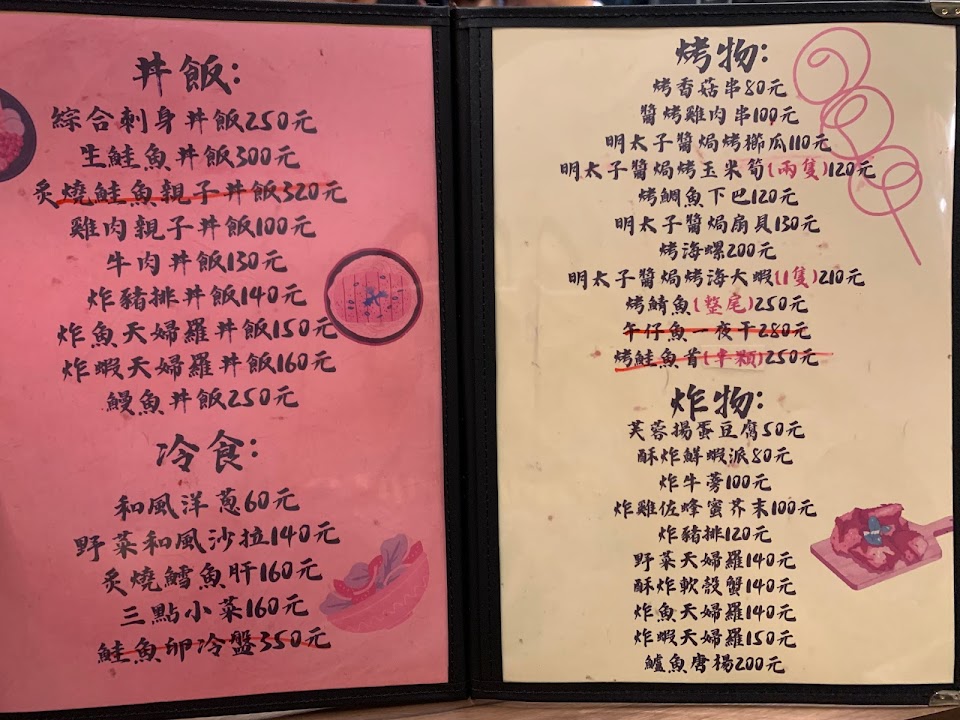 丼飯:
綜合刺身丼飯250元
生鮭魚丼飯300元
炙燒鮭魚親子丼飯320元
雞肉親子丼飯100元
牛肉丼飯130元
炸豬排丼飯140元
炸魚天婦羅丼飯150元
炸蝦天婦羅丼飯160元
鰻魚丼飯250元
冷食:
和風洋蔥60元
野菜和風沙拉140元
炙燒鱈魚肝160元
三點小菜160元
鮭魚卵冷盤350元
烤物:
烤香菇串80元
醬烤雞肉串100元
明太子醬焗烤櫛瓜110元
明太子醬焗烤玉米筍(兩隻)120元
烤鯛魚下巴120元
明太子醬焗扇貝130元
烤海螺200元
明太子醬焗烤海大蝦(1隻)210元
烤鯖魚(整尾)250元
午仔魚一夜干280元
烤鮭魚首(半顆)250元
炸物:
芙蓉揚蛋豆腐50元
酥炸鮮蝦派80元
炸牛蒡100元
炸雞佐蜂蜜芥末100元
炸豬排120元
野菜天婦羅140元
酥炸軟殼蟹140元
炸魚天婦羅140元
炸蝦天婦羅150元
鱸魚唐揚200元